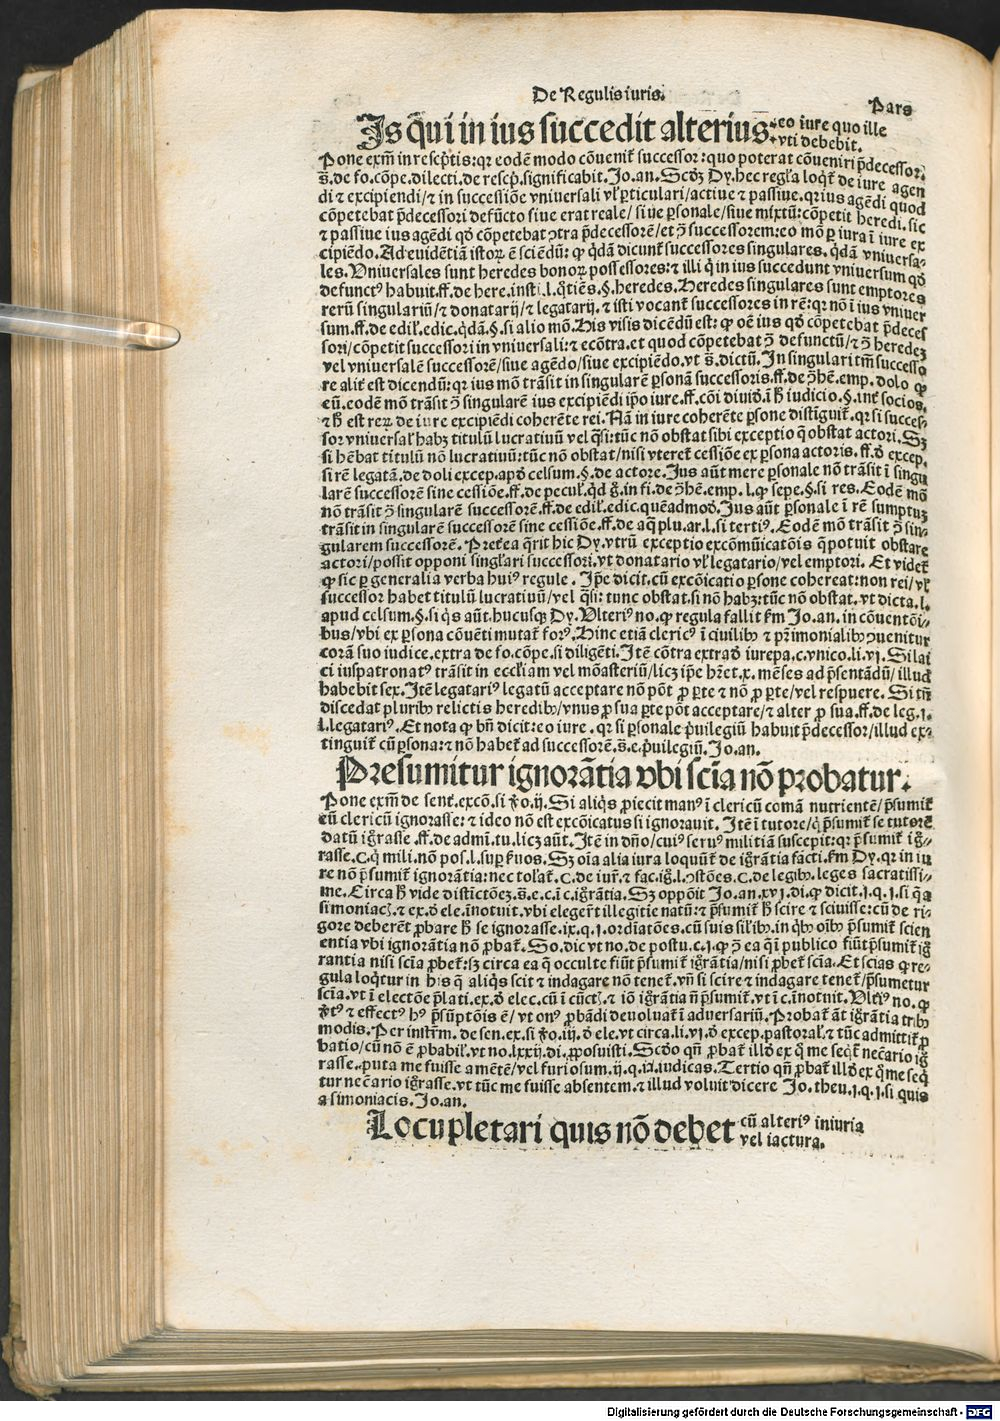 De Regulis iuris.
Pars
Is q̄ui in ius succedit alterius eo iure quo ille
vti debebit.
Pone exm̄ in rescp̄tis: qr eodē modo cōuenit successor: quo poterat cōueniri p̄decessor.
s̄. de fo. cōpe. dilecti. de rescp̄. significabit. Jo. an. Scdꝫ Dy. hec regl̄a loqt̄ de iure agen
di ⁊ excipiendi/⁊ in successiōe vniuersali vl̓ ꝑticulari/actiue ⁊ passiue. qr ius agēdi quod
cōpetebat p̄decessori defūcto siue erat reale/ siue ꝑsonale/siue mixtū: cōpetit heredi. sic
⁊ passiue ius agēdi qd̓ cōpetebat ↄtra p̄decessorē/et ꝯ̄ successorem: eo mō ꝑ iura ī iure ex
cipiēdo. Ad euidētiā istoꝝ ē sciēdū: ꝙ q̄dā dicunt̄ successores singulares. q̄dā vniuersa-
les. Vniuersales sunt heredes bonoꝝ possessores: ⁊ illi q̄ in ius succedunt vniuersum qd̓
defunctꝰ habuit. ff. de here. insti. l. q̄tiēs. §. heredes. Heredes singulares sunt emptores
rerū singulariū/⁊ donatarij/⁊ legatarij. ⁊ isti vocant̄ successores in rē: qr nō ī ius vniuer
sum. ff. de edil̓. edic. q̄dā. §. si alio mō. His visis dicēdū est: ꝙ oē ius qd̓ cōpetebat p̄deces
sori/cōpetit successori in vniuersali: ⁊ ecōtra. et quod cōpetebat ꝯ̄ defunctū/⁊ ꝯ̄ heredeꝫ
vel vniuersalē successorē/siue agēdo/siue excipiēdo. vt s̄. dictū. In singulari tm̄ successo
re alit̄ est dicendū: qr ius mō trāsit in singularē ꝑsonā successoris. ff. de ꝯ̄hē. emp. dolo ꝙ
cū. eodē mō trāsit ꝯ̄ singularē ius excipiēdi ip̄o iure. ff. cōi diuid̓. ī h̄ iudicio. §. int̄ socios.
⁊ h̄ est reꝝ de iure excipiēdi coherēte rei. Nā in iure coherēte ꝑsone distiguit̄. qr si succes-
sor vniuersal̓ habꝫ titulū lucratiuū vel q̄si: tūc nō obstat sibi exceptio q̄ obstat actori. Sꝫ
si hēbat titulū nō lucratiuū: tūc nō obstat/nisi vteret̄ cessiōe ex ꝑsona actoris. ff. d̓ excep.
si rē legatā. de doli excep. apd̓ celsum. §. de actore. Jus aūt mere ꝑsonale nō trāsit ī singu
larē successorē sine cessiōe. ff. de pecul̓. qd̓ g̓. in fi. de ꝯ̄hē. emp. l. ꝙ sepe. §. si res. Eodē mō
nō trāsit ꝯ̄ singularē successorē. ff. de edil̓. edic. quēadmod̓. Jus aūt ꝑsonale ī rē sumptuꝫ
trāsit in singularē successorē sine cessiōe. ff. de aq̄ plu. ar. l. si tertiꝰ. Eodē mō trāsit ꝯ̄ sin-
gularem successorē. Pret̄ea q̄rit hic Dy. vtrū exceptio excōmūicatōis q̄ potuit obstare
actori/possit opponi singl̓ari successori. vt donatario vl̓ legatario/vel emptori. Et videt̄
ꝙ sic ꝑ generalia verba huiꝰ regule. Ip̄e dicit. cū excōicatio ꝑsone cohereat: non rei/vl̓
successor habet titulū lucratiuū/vel q̄si: tunc obstat. si nō habꝫ: tūc nō obstat. vt dicta. l.
apud celsum. §. si q̄s aūt. hucusqꝫ Dy. Vlteriꝰ no. ꝙ regula fallit fm̄ Jo. an. in cōuentōi-
bus/vbi ex ꝑsona cōuēti mutat̄ forꝰ. Hinc etiā clericꝰ ī ciuilibꝰ ⁊ pr̄imonialibꝰ ↄuenitur
corā suo iudice. extra de fo. cōpe. si diligēti. Itē cōtra extrad̓ iurepa. c. vnico. li. vj. Si lai
ci iuspatronatꝰ trāsit in eccl̓iam vel mōasteriū/licꝫ ip̄e hr̄et. x. mēses ad p̄sentādū/ illud
habebit sex. Itē legatariꝰ legatū acceptare nō pōt ꝓ ꝑte ⁊ nō ꝓ ꝑte/vel respuere. Si tn̄
discedat pluribꝰ relictis heredibꝰ/vnus ꝓ sua ꝑte pōt acceptare/⁊ alter ꝓ sua. ff. de leg. j.
l. legatariꝰ. Et nota ꝙ bn̄ dicit: eo iure. qr si ꝑsonale p̄uilegiū habuit p̄decessor/illud ex-
tinguit̄ cū ꝑsona: ⁊ nō habet̄ ad successorē. s̄. e. p̄uilegiū. Jo. an.
Presumitur ignorātia vbi scīa nō probatur.
Pone exm̄ de sent̄. excō. si v̓o. ij. Si aliq̄s ꝓiecit manꝰ ī clericū comā nutrientē/p̄sumit̄
eū clericū ignorasse: ⁊ ideo nō est excōicatus si ignorauit. Itē ī tutore/q̄ p̄sumit̄ se tutorē
datū iḡrasse. ff. de admi. tu. licꝫ aūt. Itē in dn̄o/cuiꝰ seruꝰ militiā suscepit: qr p̄sumit̄ iḡ-
rasse. C. q̄ mili. nō pos. l. suꝑ ẜuos. Sꝫ oīa alia iura loquūt̄ de iḡrātia facti. fm̄ Dy. qr in iu
re nō p̄sumit̄ ignorātia: nec tolat̄. C. de iur̄. ⁊ fac. iḡ. l. ↄstōes. C. de legibꝰ. leges sacratissi-
me. Circa h̄ vide distictōeꝫ. s̄. e. c. ī c. iḡrātia. Sꝫ oppōit Jo. an. xvj. di. ꝙ dicit. j. q. j. si q̄ a
simoniacꝭ. ⁊ ex. d̓ ele. īnotuit. vbi elegert̄ illegitie natū: ⁊ p̄sumit̄ h̄ scire ⁊ sciuisse: cū de ri-
gore deberēt ꝓbare h̄ se ignorasse. ix. q. j. ordīatōes. cū suis sil̓ibꝰ. in q̄bꝰ oībꝰ p̄sumit̄ scien
entia vbi ignorātia nō ꝓbat̄. So. dic vt no. de postu. c. j. ꝙ ꝯ̄ ea q̄ ī publico fiūt p̄sumit̄ iḡ
rantia nisi scīa ꝓbet̄: sꝫ circa ea q̄ occulte fiūt p̄sumit̄ iḡrātia/nisi ꝓbet̄ scīa. Et scias ꝙ re-
gula loqt̄ur in his q̄ aliq̄s scit ⁊ indagare nō tenet̄. vn̄ si scire ⁊ indagare tenet̄/p̄sumetur
scīa. vt ī electōe p̄lati. ex. d̓ elec. cū ī cūctꝭ. ⁊ iō iḡrātia n̄ p̄sumit̄. vt ī c. īnotuit. Vlt̓iꝰ no. ꝙ
v̓tꝰ ⁊ effectꝰ hꝰ p̄sūptōis ē/ vt onꝰ ꝓbādi deuoluat̄ ī aduersariū. Probat̄ āt iḡrātia tribꝰ
modis. Per instr̄m. de sen. ex. si v̓o. iij. d̓ ele. vt circa. li. vj. d̓ excep. pastoral̓. ⁊ tūc admittit̄ ꝓ
batio/cū nō ē ꝓbabil̓. vt no. lxxij. di. ꝓposuisti. Scd̓o qn̄ ꝓbat̄ illd̓ ex q̄ me seqt̄ nec̄ario iḡ
rasse. puta me fuisse amētē/vel furiosum. ij. q. vj. iudicas. Tertio qn̄ ꝓbat̄ illd̓ ex q̄ me seq̄
tur nec̄ario iḡrasse. vt tūc me fuisse absentem. ⁊ illud voluit dicere Jo. theu. j. q. j. si quis
a simoniacis. Jo. an.
Locupletari quis nō debet cū alteriꝰ iniuria
vel iactura.
Digitalisierung gefördert durch die Deutsche Forschungsgemeinschaft - DFG